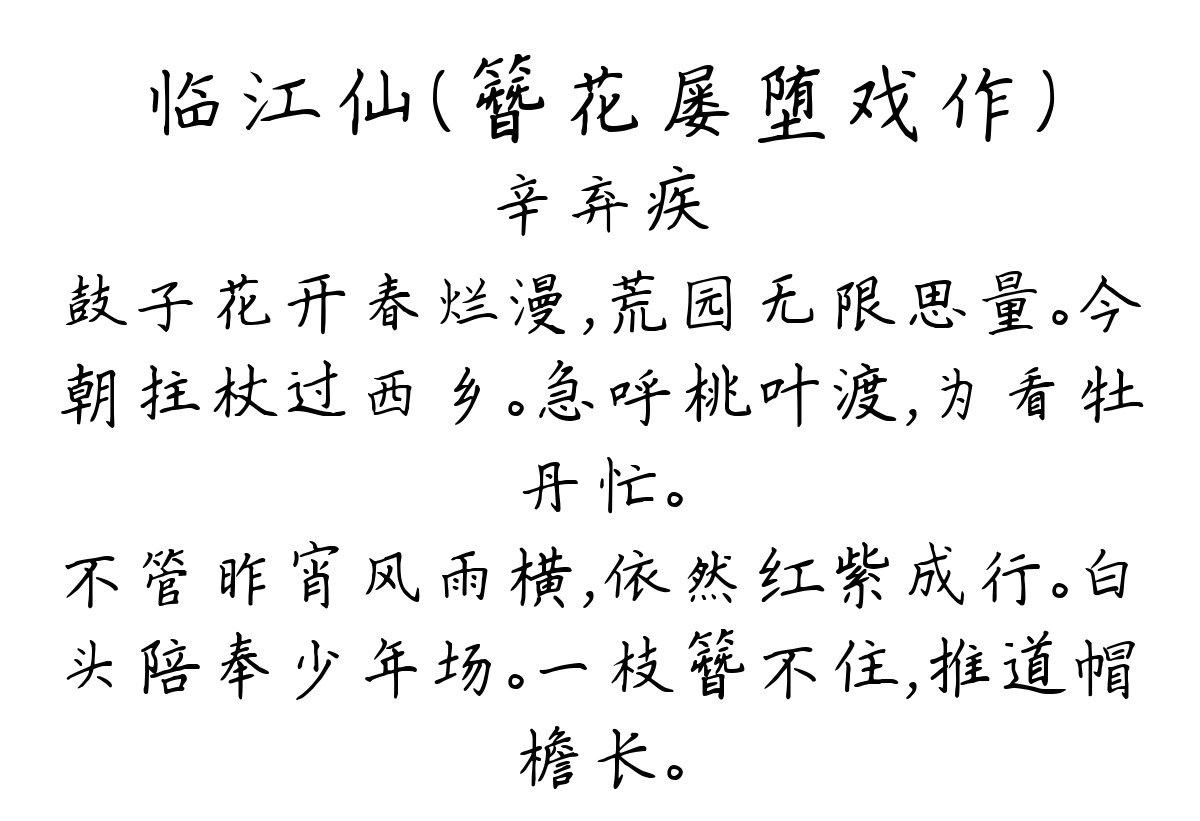 临江仙(簪花屡堕戏作)
辛弃疾
鼓子花开春烂漫,荒园无限思量。今
朝拄杖过西乡。急呼桃叶渡,为看牡
丹忙。
不管昨宵风雨横,依然红紫成行。白
头陪奉少年场。一枝簪不住,推道帽
檐长。